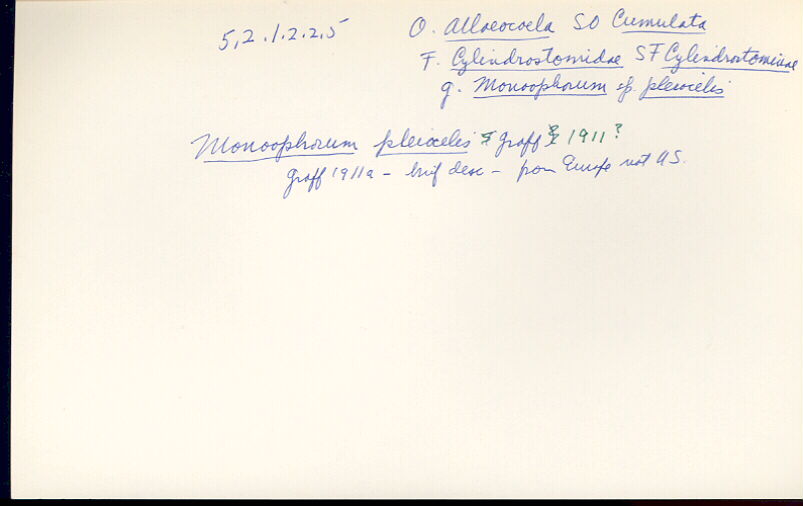 5,2.1.2.2.5
O. Alloeocoela SO Cumulata
F. Cylindrostomidae SF Cylindrostominae
g. Monoophorum sp. pleiocelis
Monoophorum pleiocelis Graff 1911?
Graff 1911a - brief desc - from Europe not US.